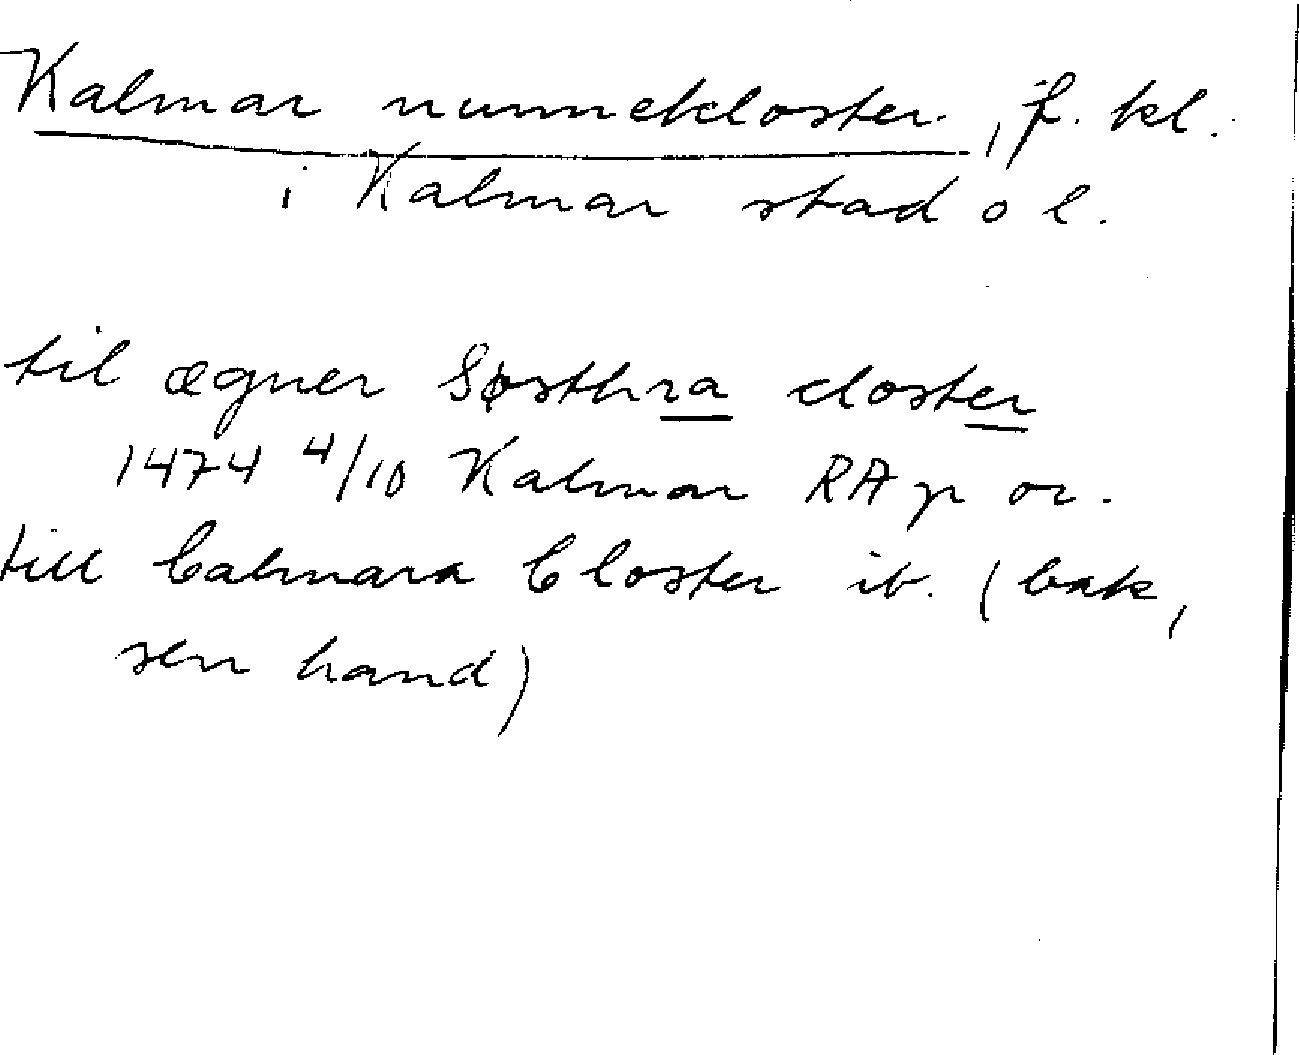 Kalmar nunnekloster, f. kl.
i Kalmar stad o l.
til ægner Søsthra closter
1474 4/10 Kalmar RA p or.
till Calmara Closter ib. (bak,
sen hand)